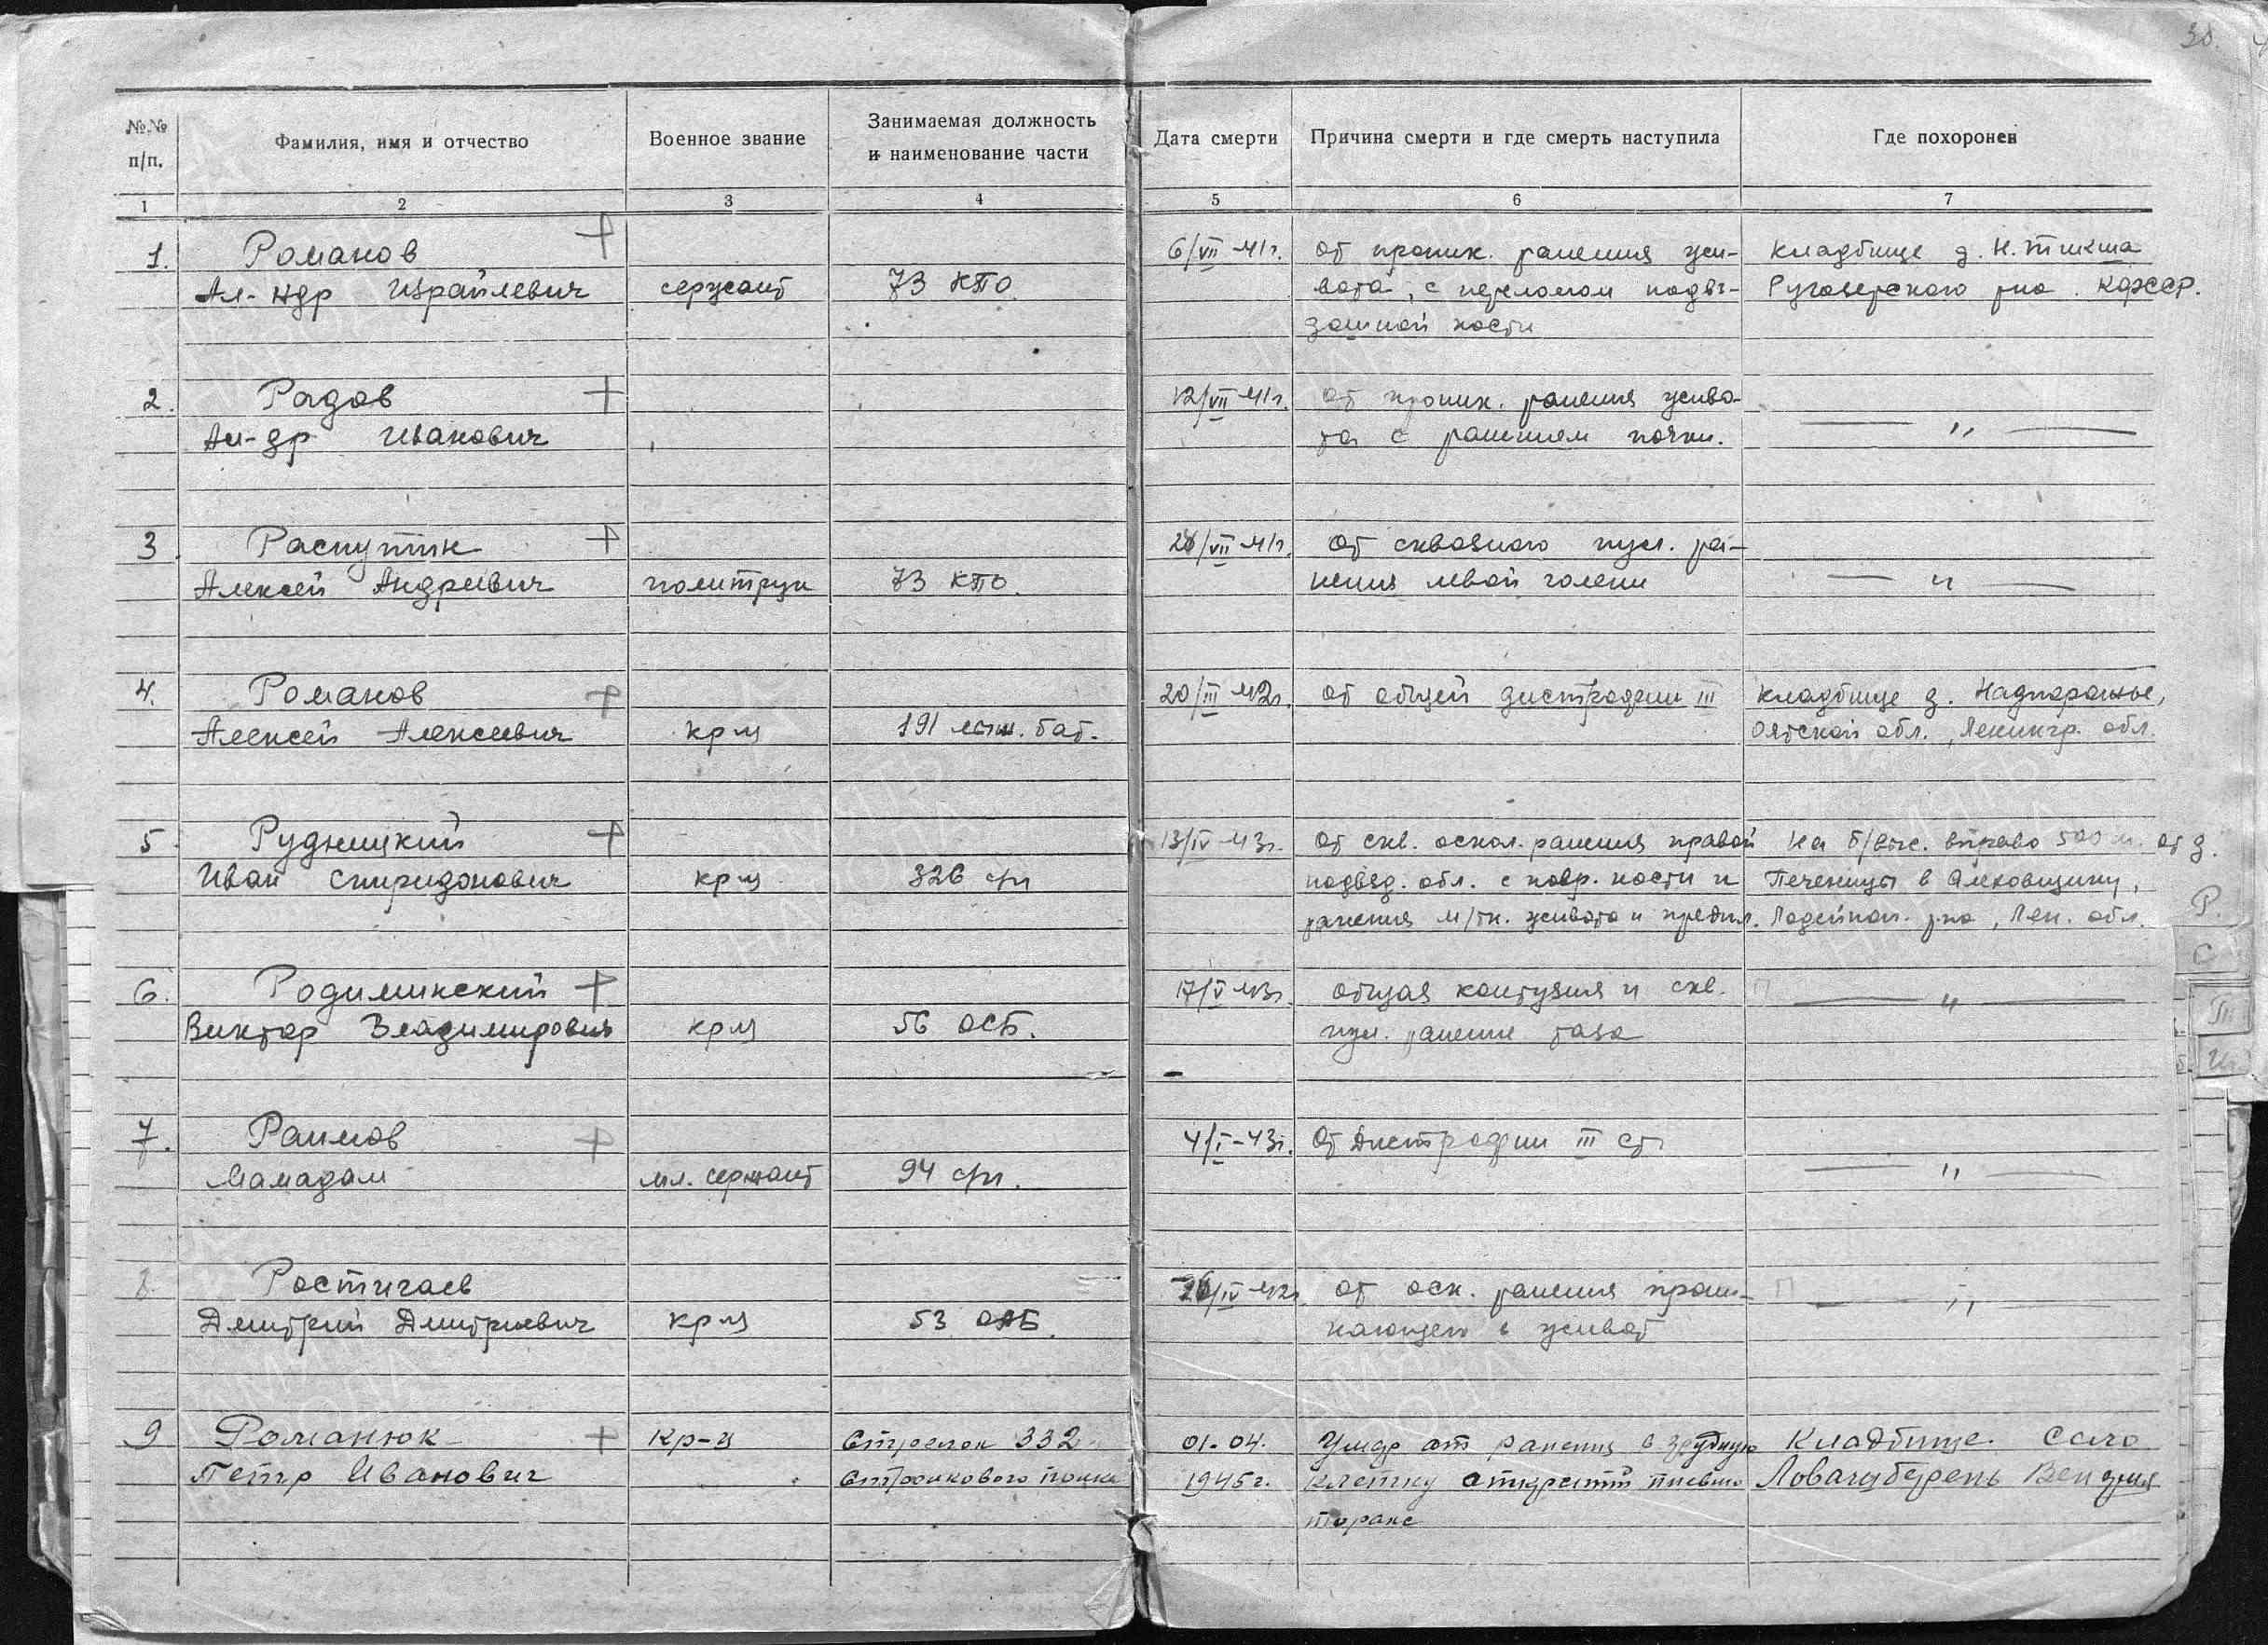 38.
№№ п/п.
Фамилия, имя и отчество
Военное звание
Занимаемая должность
и наименование части
Дата смерти
Причина смерти и где смерть наступила
Где похоронен
1 2 3 4 5 6 7
1. Романов 6/VII 41г. от проник. ранения жи- кладбище д. Н. Тикша
Ал-ндр Израйлевич сержант 73 КПО вота, с переломом подвз- Ругозерского р-на. КФССР.
дошной кости
2. Радов 12/VII 41г. от проник. ранения живо-
Ал-др Иванович та с ранением почки. — „ —
3. Распутин 28/VII 41г. от сквозного пул. ра-
Алексей Андреевич политрук 73 КПО. нения левой голени — „ —
4. Романов 20/III 42г. от общей дистрофии III кладбище д. Надпорожье,
Алексей Алексеевич кр-ц 191 лыж. бат. Оятской обл., Ленингр. обл.
5 Рудницкий 13/IV-43г. от скв. оскол. ранения правой На вправо 500 м. от д.
Иван Спиридонович кр-ц 326 сп подвзд. обл. с повр. кости и Печеницы в Алеховщину,
ранения м/тк. живота и предпл. Лодейноп. р-на, Лен. обл.
6. Родиминский 17/V 43г. общая контузия и скв. — „ —
Виктор Владимирович кр-ц 56 ОСБ. пул. ранение таза
7. Раимов 4/I-43г. от Дистрофии III ст.
Мамадам мл. сержант 94 сп. — „ —
8. Ростигаев 26/IV 42г от оск. ранения прони- — „ —
Дмитрий Дмитриевич кр-ц 53 кающего в живот
9 Романюк кр-ц Стрелок 332 01.04. Умер от ранения в грудную Кладбище село
Петр Иванович Стрелкового полка 1945г. клетку открытый пневмо Ловасцберень Венгрия
торакс
Р.
С